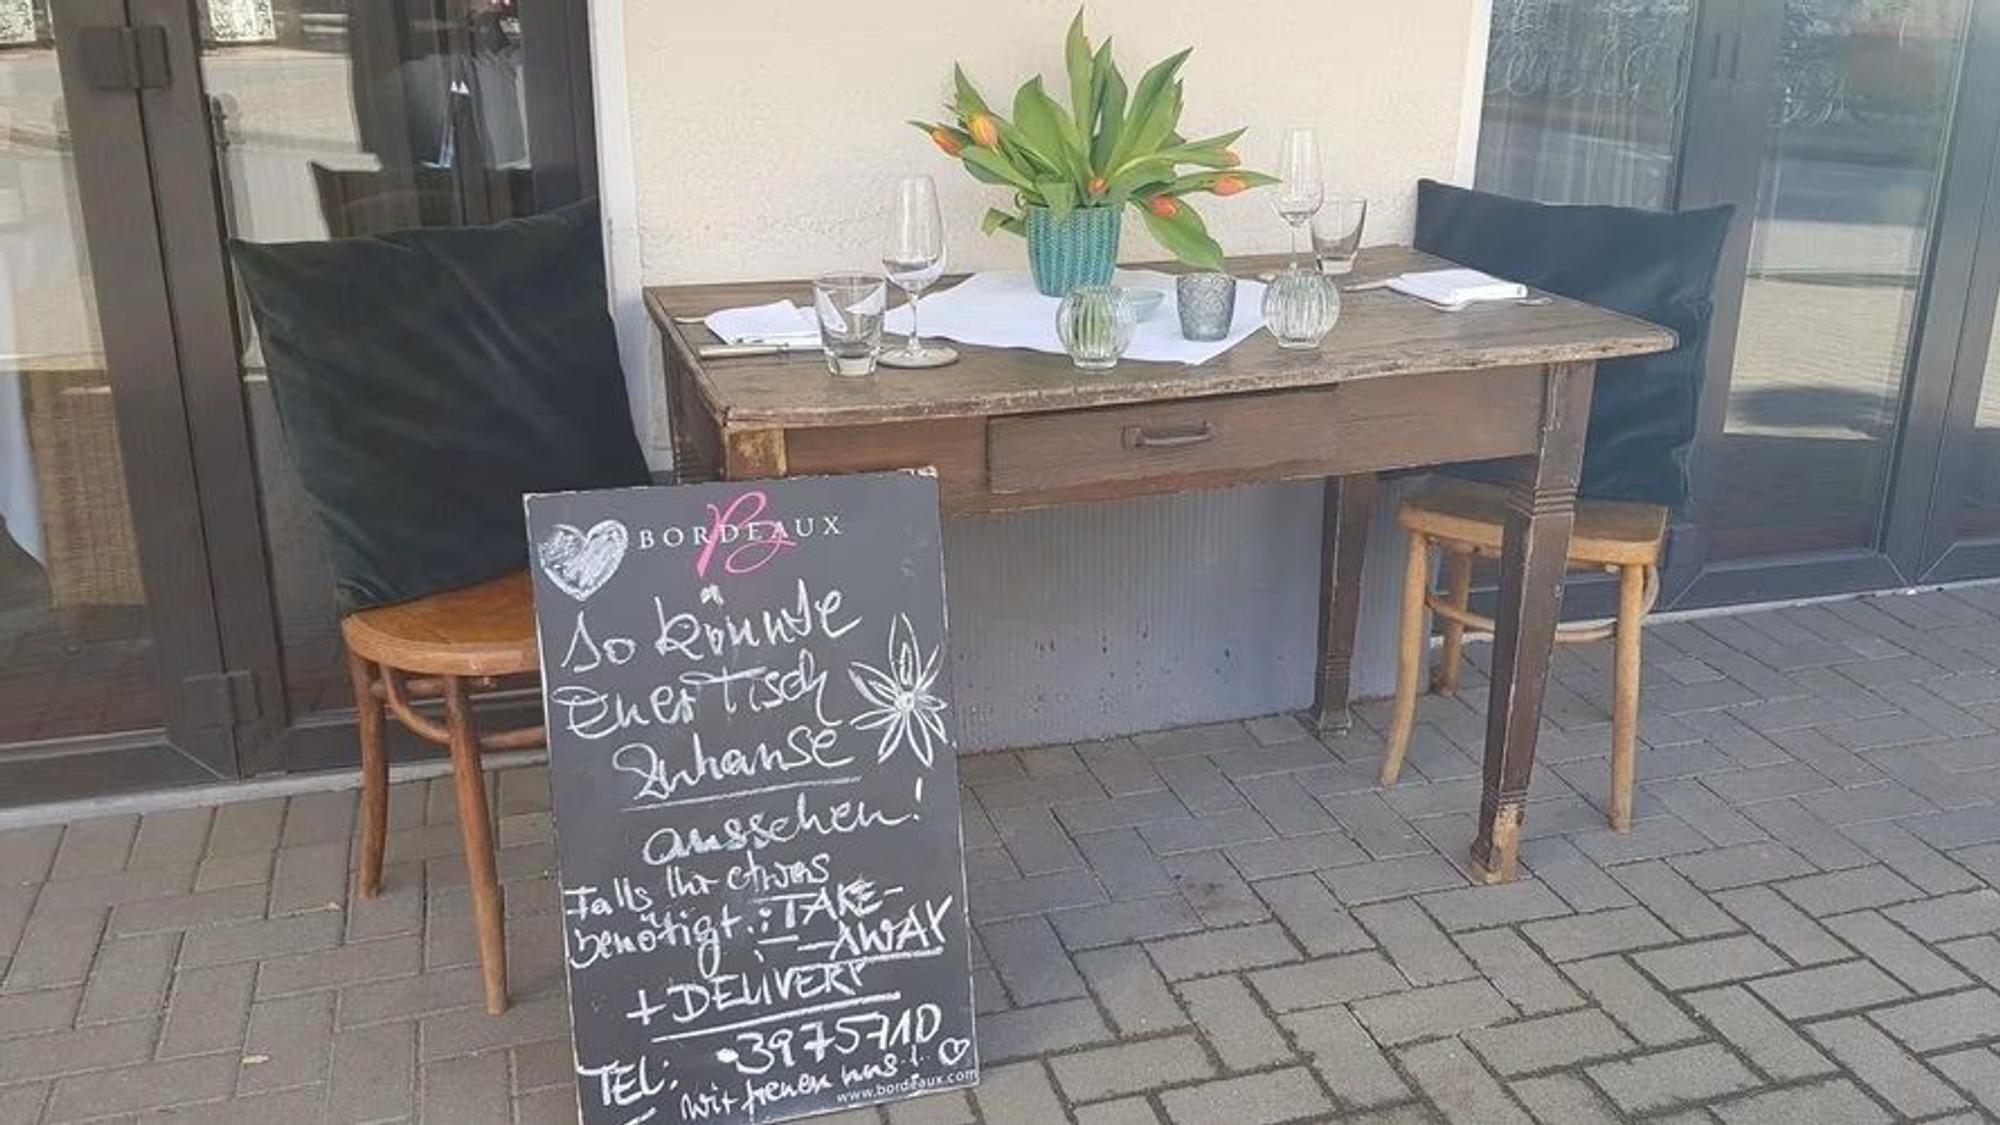 BORDEAUX
So könnte
Euer Tisch
Zuhause
aussehen!
Falls Ihr etwas
benötigt: TAKE-
-AWAY
+ DELIVERY
TEL: 3975710
wir freuen uns!
www.bordeaux.com